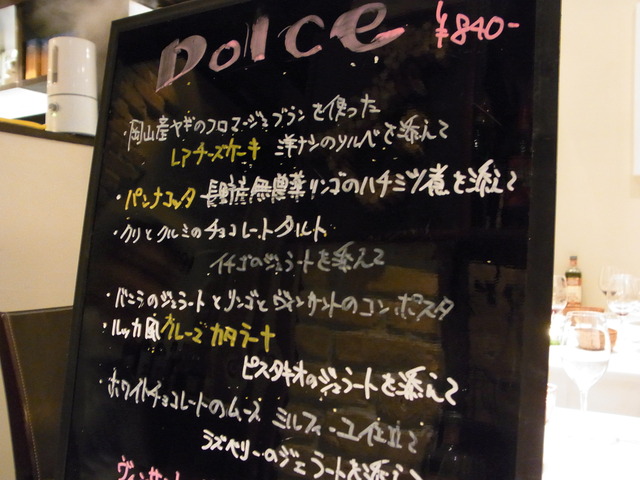 Dolce ¥840-
・岡山産ヤギのフロマージュブランを使った
レアチーズケーキ 洋ナシのソルベを添えて
・パンナコッタ 長野産無農薬リンゴのハチミツ煮を添えて
・クリとクルミのチョコレートタルト
イチゴのジェラートを添えて
・バニラのジェラートとリンゴとヴィンサントのコンポスタ
・ルッカ風カレーマカタラーナ
ピスタチオのジェラートを添えて
・ホワイトチョコレートのムース ミルフィーユ仕立て
ラズベリーのジェラートを添え
ヴィンサント